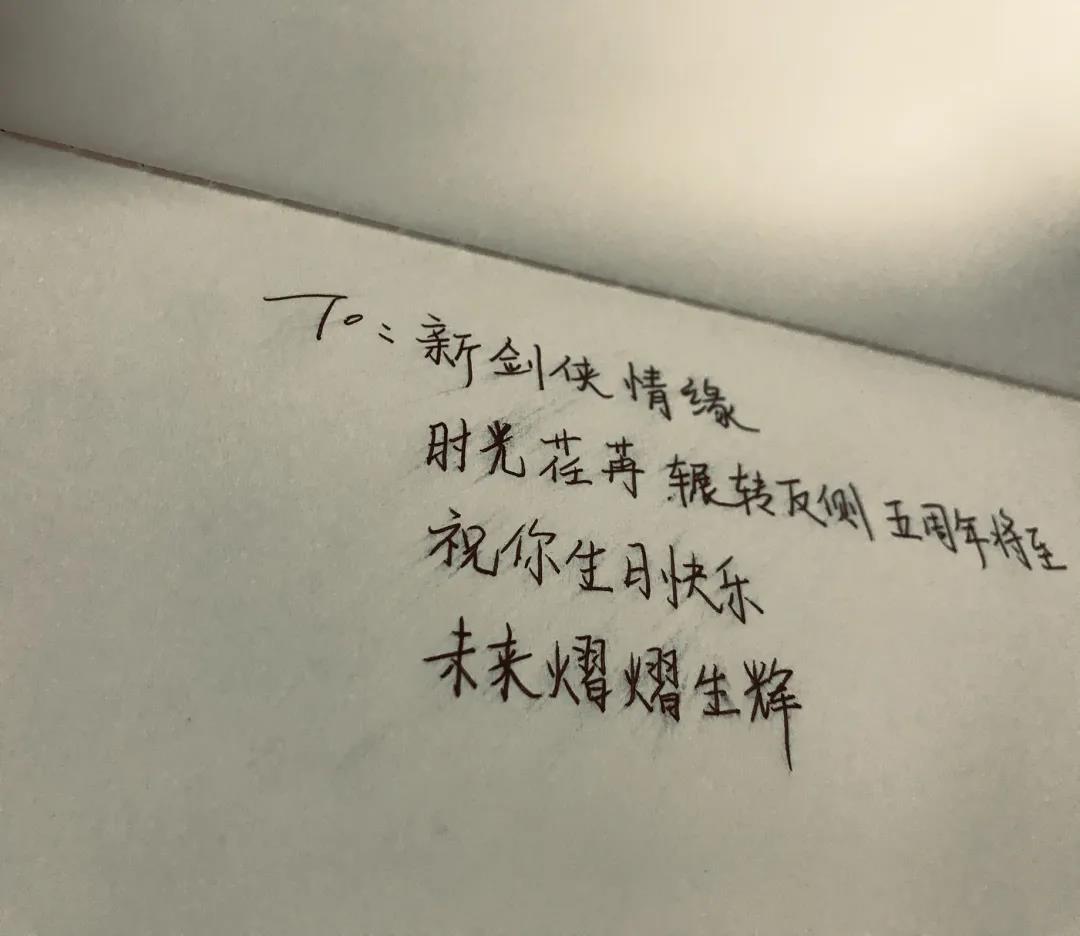 To: 新剑侠情缘
时光荏苒 辗转反侧 五周年将至
祝你生日快乐
未来熠熠生辉